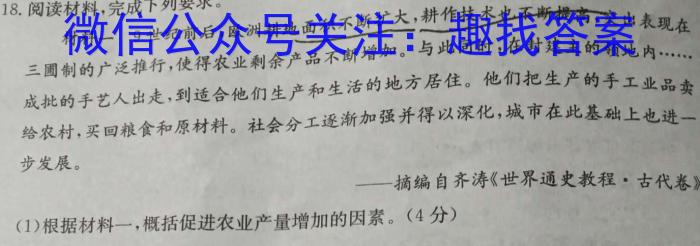 18. 阅读材料,完成下列要求。
世纪前后,欧洲耕地面积不断扩大,耕作技术也不断提高 出表现在
微信公众号关注:趣找答案
三圃制的广泛推行,使得农业剩余产品不断增加。与此同时,在封建主的领地内……
成批的手艺人出走,到适合他们生产和生活的地方居住。他们把生产的手工业品卖
给农村,买回粮食和原材料。社会分工逐渐加强并得以深化,城市在此基础上也进一
步发展。
——摘编自齐涛《世界通史教程·古代卷》
(1)根据材料一,概括促进农业产量增加的因素。(4分)